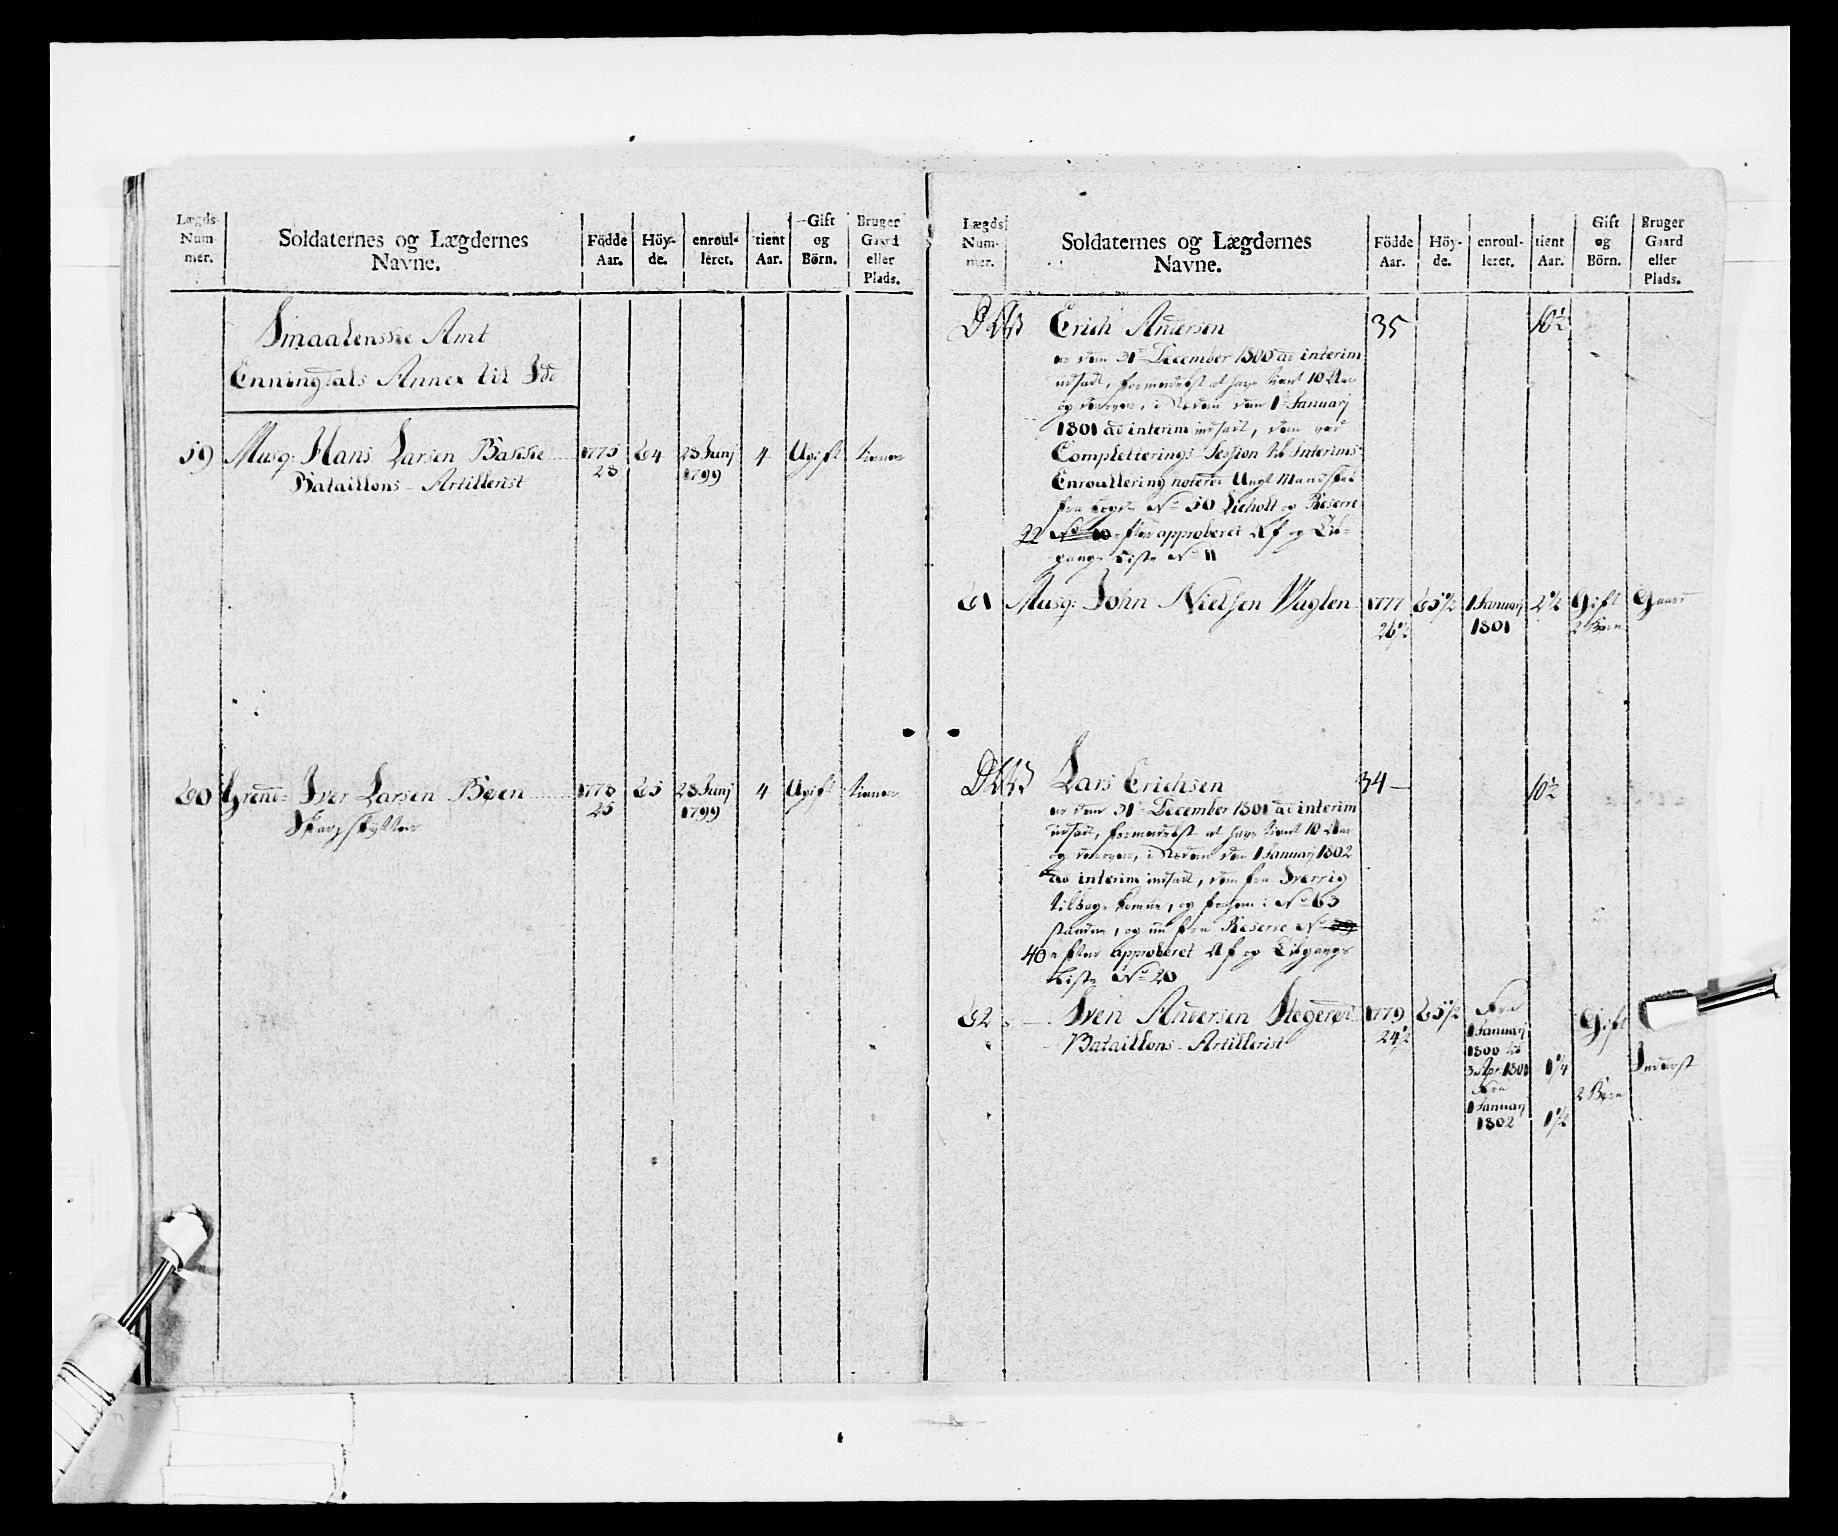 Lægds- Num- mer.
Soldaternes og Lægdernes Navne.
Födde Aar.
Höy- de.
enroul- leret.
tient Aar.
Gift og Börn.
Bruger Gaard eller Plads.
Smaalenske Amt
Enningdals Annex til Idd
59 Musq: Hans Larsen Bakke 1775 64 28 Junj 4 Ugift tiener
Bataillons-Artillerist 28 1799
60 Grend= Iver Larsen Bøen 1778 65 28 Junj 4 Ugift tiener
Skarpskytter 25 1799
Lægds Num- mer.
Soldaternes og Lægdernes Navne.
Födde Aar.
Höy- de.
enroul- leret.
tient Aar.
Gift og Börn.
Bruger Gaard eller Plads.
Erich Andersen 35 10½
er dem 31te December 1800 ad interim
udsadt, formedelst at have tient 10 Aar
og derover, i Steden dem 1te Januarj
1801 ad interim indsadt, dem ved
Completterings-Session til Interims-
Enroullering noterede Ungt Mandskab
fra Lægd No 50 Lieholt og Reserve
22 No 10 efter approberet Af og Til-
gangs Liste No 11
61 Musq: John Nielsen Vaglen 1777 65½ 1 Januarj 2½ Gift Gaard
26½ 1801 2 Børn
Lars Erichsen 34 10½
er dem 31te December 1801 ad interim
udsadt, formedelst at have tient 10 Aar
og derover, i Steden dem 1 Januarj 1802
ad interim indsadt, dem fra Sverrig
tilbage komne, og forhen i No 63
staaende, og nu fra Reserve No
40 efter approberet Af og Tilgangs
Liste No 20
62 Sven Andersen Stegerød 1779 65½ Fra Gift
Bataillons-Artillerist 24½ 1 Januarj
1800 til
3 Apr. 1801 1¼ Inderst
Fra 2 Børn
1 Januarj
1802 1½